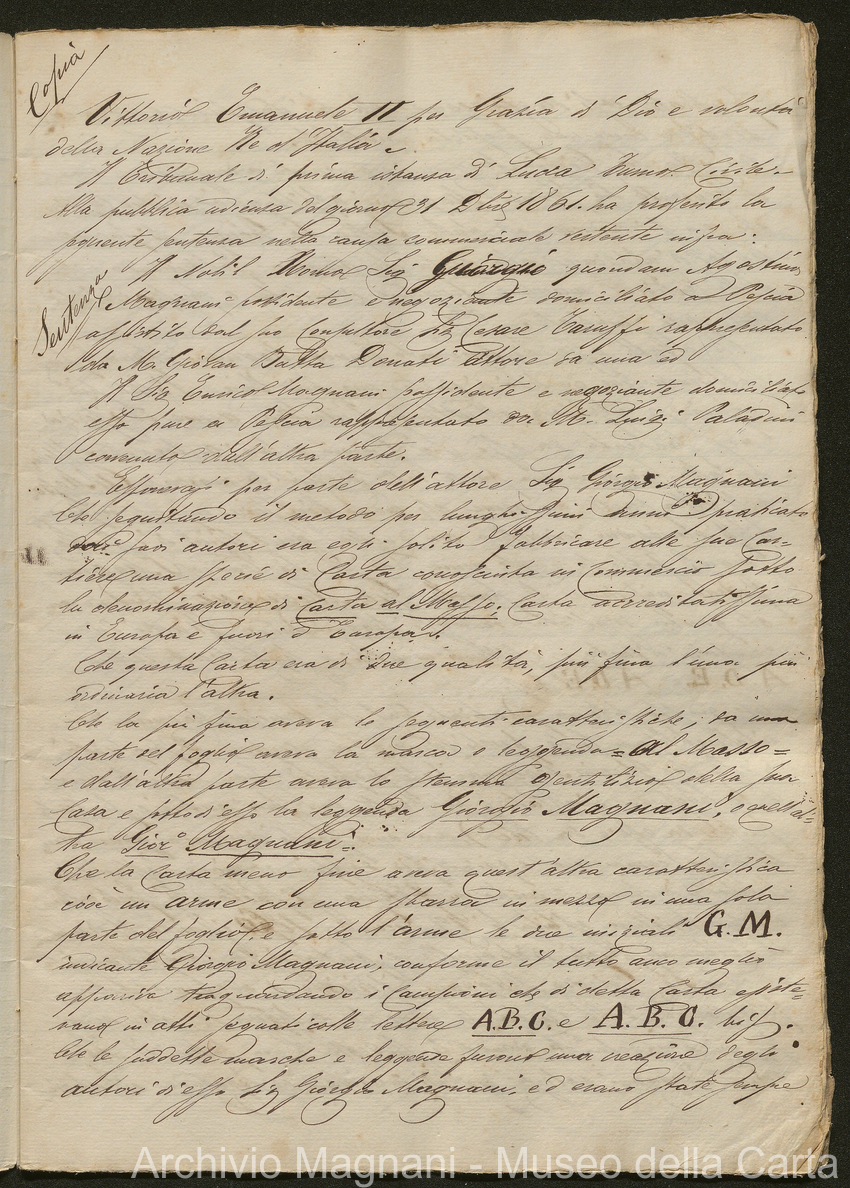 Copia
Vittorio Emanuele II per Grazia di Dio e volontà
della Nazione Re d'Italia.
Il Tribunale di prima istanza di Lucca Civile.
Alla pubblica udienza del giorno 31 1861. ha proferito la
seguente sentenza nella causa commerciale vertente infra:
Sentenza
Il Nobil Sig Giorgio quondam Agostino
Magnani possidente e negoziante domiciliato a Pescia
assistito dal suo Consultore Sig Cesare Taruffi rappresentato
da M. Giovan Batta Donati Attore da una ed
Il Sig Enrico Magnani possidente e negoziante domiciliato
esso pure a Pescia rappresentato da M. Luigi Paladini
convenuto dall'altra parte.
per parte dell'attore Sig Giorgio Magnani
Che seguitando il metodo per lunghissimi anni praticato
suoi autori era egli solito fabbricare alle sue Car-
tiere una specie di Carta conosciuta in Commercio sotto
la denominazione di Carta al Masso. Carta accreditatissima
in Europa e fuori d'Europa.
Che questa Carta era di due qualità, più fina l'una più
ordinaria l'altra.
Che la più fina aveva le seguenti caratteristiche; da una
parte del foglio aveva la marca o leggenda = Al Masso =
e dall'altra parte aveva lo stemma gentilizio della sua
Casa e sotto di esso la leggenda Giorgio Magnani, o quell'al-
tra Gior.º Magnani.
Che la Carta meno fine aveva quest'altra caratteristica
cioè un arme con una sbarra in mezzo in una sola
parte del foglio, e sotto l'arme le due iniziali G. M.
indicante Giorgio Magnani, conforme il tutto anco meglio
appariva traguardando i Campioni che di detta Carta esiste-
vano in atti segnati colle lettere A.B.C. e A.B.C. bis.
Che le suddette marche e leggende furono una creazione degli
autori di esso Sig Giorgio Magnani, ed erano state sempre
Archivio Magnani - Museo della Carta